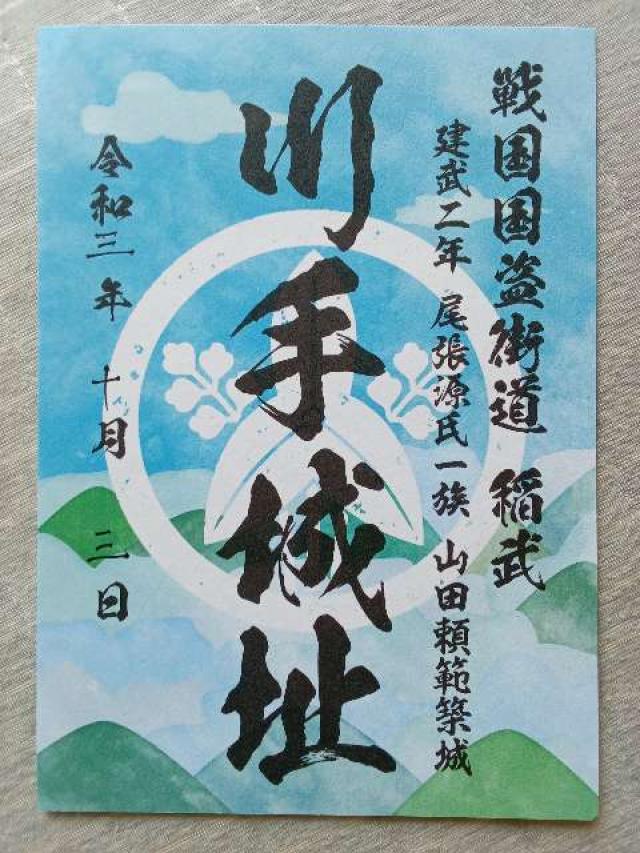 戦国国盗街道 稲武
建武二年 尾張源氏一族 山田頼範築城
川手城址
令和三年 十月 三日